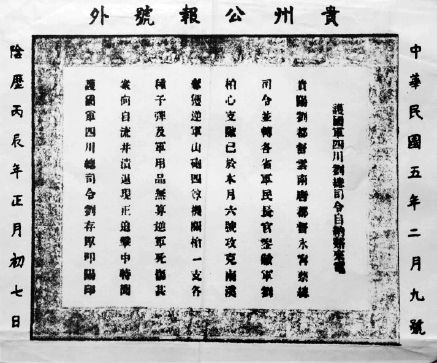 貴州公報號外
中華民國五年二月九號
護國軍四川劉總司令自納谿來電
貴陽劉都督雲南唐都督永寧蔡總
司令並轉各省軍民長官鑒敝軍劉
柏心支隊已於本月六號攻克南溪
奪獲逆軍山砲四尊機關槍一支各
種子彈及軍用品無算逆軍死傷甚
衆向自流井潰退現正追擊中特聞
護國軍四川總司令劉存厚叩陽印
陰歷丙辰年正月初七日